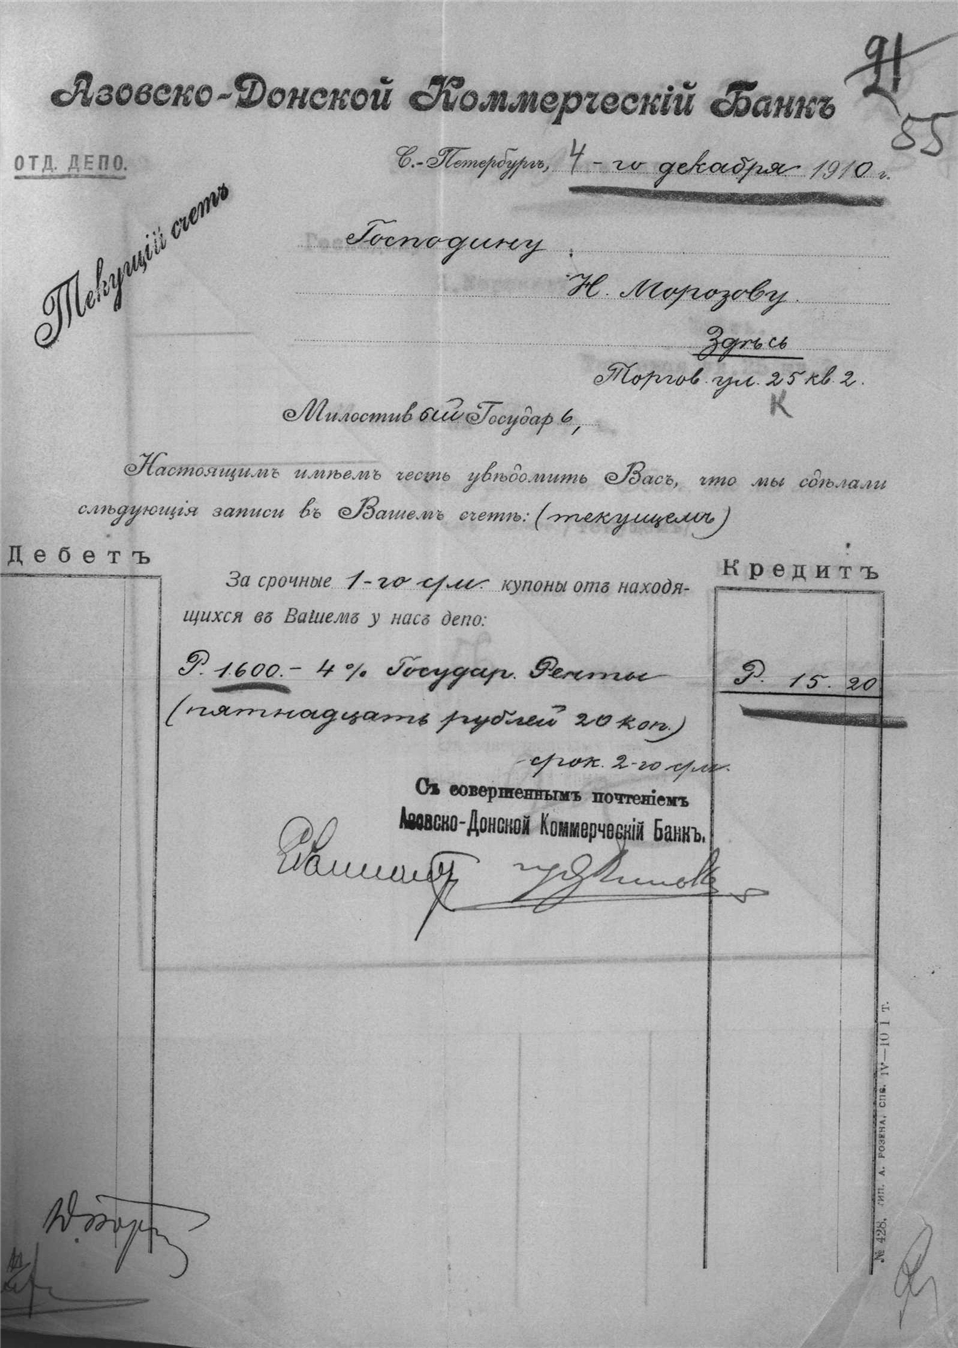 91
55
Азовско-Донской Коммерческій Банкъ
ОТД. ДЕПО.
С.-Петербургъ, 4-го декабря 1910 г.
Текущій счетъ
Господину
Н. Морозову.
Здѣсь
Торгов. ул. 25 кв 2.
К
Милостивый Государь,
Настоящимъ имѣемъ честь увѣдомить Васъ, что мы сдѣлали
слѣдующія записи въ Вашемъ счетѣ: (текущемъ)
Дебетъ
Кредитъ
За срочные 1-го с/м. купоны отъ находя-
щихся въ Вашемъ у насъ депо:
Р. 1600.- 4% Государ. Ренты
Р. 15. 20
(пятнадцать рублей 20 коп.)
срок. 2-го с/м.
Съ совершеннымъ почтеніемъ
Азовско-Донской Коммерческій Банкъ.
№ 428. Тип. А. РОЗЕНА, СПБ. IV—10 1 т.